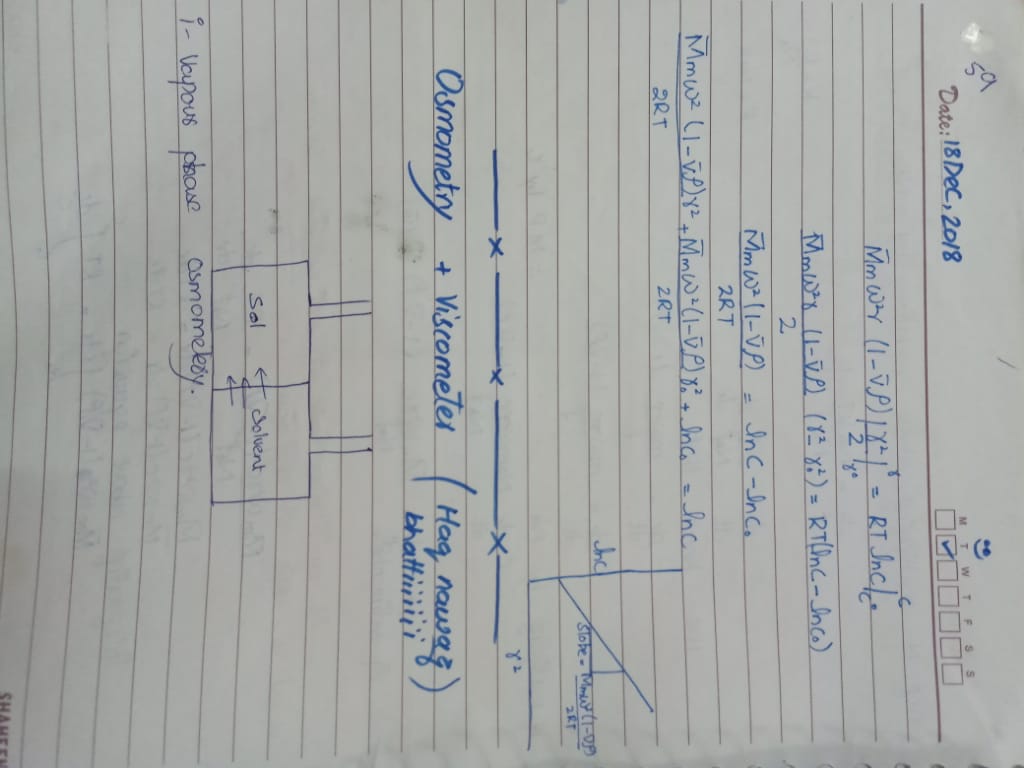 59
Date: 18 Dec, 2018
M T W T F S S
M̄mω²r (1-v̄ρ) |r²/2|ʳᵣ₀ = RT lnC|ᶜC₀
M̄mω²r/2 (1-v̄ρ) (r²-r₀²) = RT(lnC-lnC₀)
M̄mω²(1-v̄ρ)/2RT = lnC-lnC₀
M̄mω²(1-v̄ρ)r²/2RT + M̄mω²(1-v̄ρ)r₀²/2RT + lnC₀ = lnC
lnC
Slope = M̄mω²(1-v̄ρ)/2RT
r²
x x x
Osmometry + Viscometer (Haq nawaz
bhattiiiiii)
Sol Solvent
i- Vapous phase osmometery.